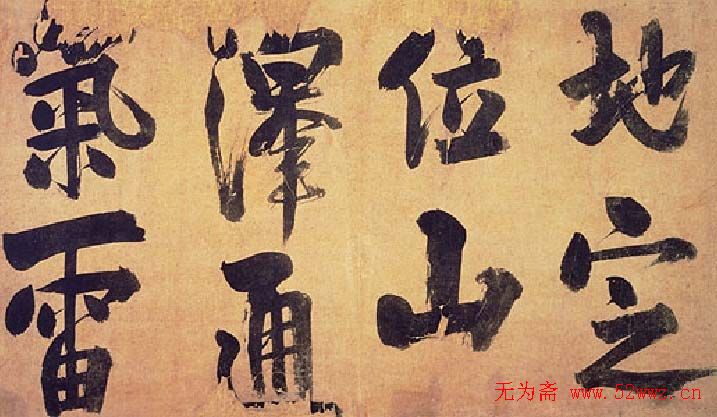 地定
位山
澤通
氣雷
无为斋 www.52wwz.cn